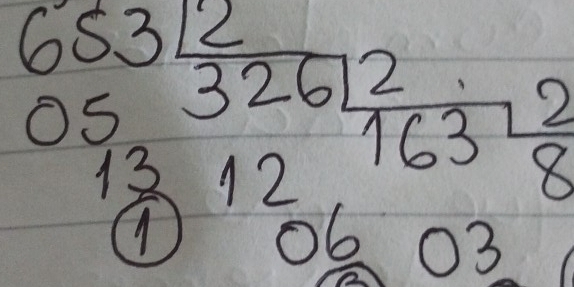 653 2
326 2
163 2
8
05
13 12
1 06 03